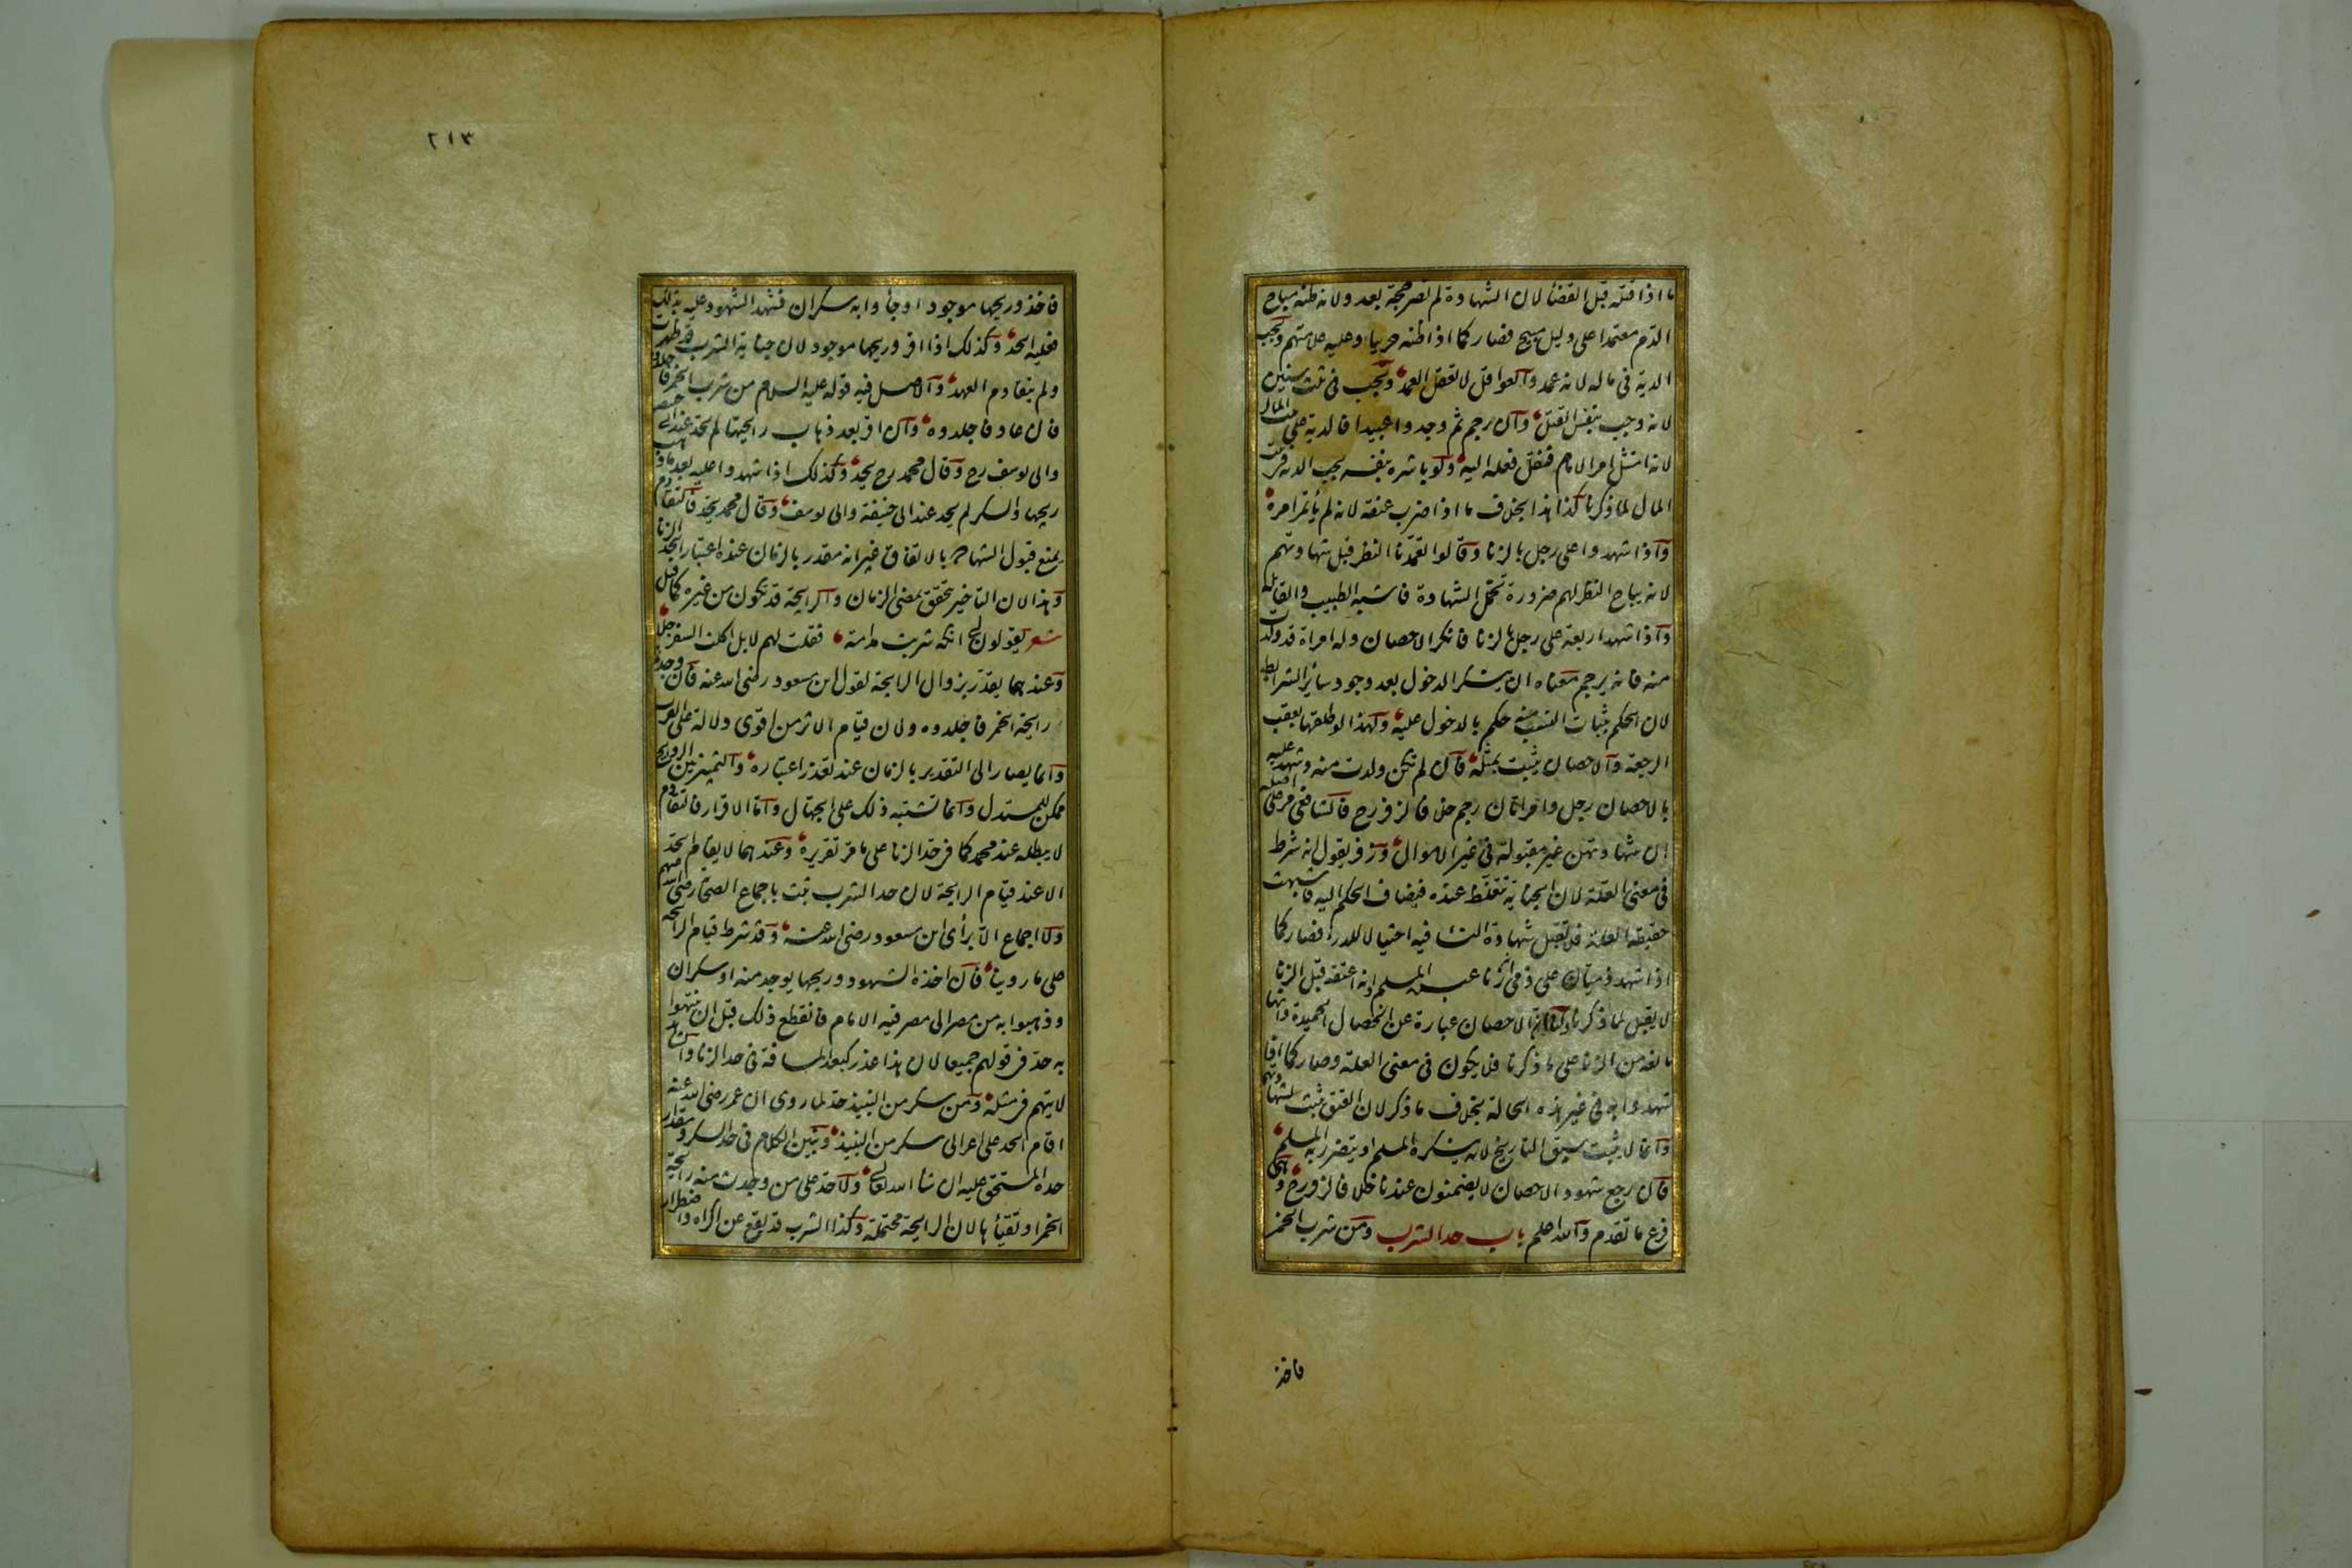 ما اذا قتله قبل القضأ لان الشهادة لم تصر حجة بعد ولانه ظنه مباح
الدم معتمدا على دليل مبيح فصار كما اذا ظنه حربيا وعليه علامتهم وتجب
الدية فى ماله لانه عمد والعواقل لا تعقل العمد وتجب فى ثلث سنين
لانه وجب بنفس القتل وان رجم ثم وجدوا عبيدا فالدية على بيت المال
لانه امتثل امر الامام فنقل فعله اليه ولو باشره بنفسه يجب الدية فى بيت
المال لما ذكرنا كذا هذا بخلاف ما اذا ضرب عنقه لانه لم يأتمر امره
واذا شهدوا على رجل بالزنا وقالوا تعمدنا النظر قبل شهادتهم
لانه يباح النظر لهم ضرورة تحمل الشهادة فاشبه الطبيب والقابلة
واذا شهد اربعة على رجل بالزنا فانكر الاحصان وله امراة قد ولدت
منه فانه يرجم معناه ان ينكر الدخول بعد وجود سائر الشرائط
لان الحكم بثبات النسب منه حكم بالدخول عليه ولهذا لو طلقها يعقب
الرجعة والاحصان يثبت بمثله فان لم تكن ولدت منه وشهد عليه
بالاحصان رجل وامراتان رجم خلافا لزفر رح فالشافعى مر على اصله
ان شهادتهن غير مقبولة فى غير الاموال وزفر يقول انه شرط
فى معنى العلة لان الجناية تتغلظ عنده فيضاف الحكم اليه فاشبهت
حقيقة العلة فلا تقبل شهادة النسا فيه احتيالا للدرء فصار كما
اذا شهد ذميان على ذمى زنا عبده المسلم انه اعتقه قبل الزنا
لا يقبل لما ذكرنا ولنا ان الاحصان عبارة عن الخصال الحميدة وانها
مانعة من الزنا على ما ذكرنا فلا يكون فى معنى العلة وصار كما اذا
شهدوا به فى غير هذه الحالة بخلاف ما ذكر لان العتق يثبت بشهادتهما
وانما لا يثبت سبق التاريخ لانه ينكره المسلم او يتضرر به المسلم
فان رجع شهود الاحصان لا يضمنون عندنا خلافا لزفر رح وهى
فرع ما تقدم والله اعلم باب حد الشرب ومن شرب الخمر
فاخذ
٢١٣
فاخذ وريحها موجود او جأوا به سكران فشهد الشهود عليه بذلك
فعليه الحد وكذلك اذا اقر وريحها موجود لان جناية الشرب قد ظهرت
ولم يتقادم العهد والاصل فيه قوله عليه السلام من شرب الخمر فاجلدوه
فان عاد فاجلدوه وان اقر بعد ذهاب رايحتها لم يحد عند ابى حنيفة
وابى يوسف رح وقال محمد رح يحد وكذلك اذا شهدوا عليه بعد ما ذهب
ريحها والسكر لم يحد عند ابى حنيفة وابى يوسف وقال محمد يحد فالتقادم
يمنع قبول الشهادة بالاتفاق غير انه مقدر بالزمان عنده اعتبارا بحد الزنا
وهذا لان التاخير يتحقق بمضى الزمان والرايحة قد تكون من غيره كما قيل
شعر يقولون لى انكه شربت مدامة فقلت لهم لا بل اكلت السفرجلا
وعندهما يقدر بزوال الرايحة لقول ابن مسعود رضى الله عنه فان وجدتم
رايحة الخمر فاجلدوه ولان قيام الاثر من اقوى دلالة على القرب
وانما يصار الى التقدير بالزمان عند تعذر اعتباره والتمييز بين الروايح
ممكن للمستدل وانما تشتبه ذلك على الجهال واما الاقرار فالتقادم
لا يبطله عند محمد كما فى حد الزنا على ما مر تقريره وعندهما لا يقام الحد
الا عند قيام الرايحة لان حد الشرب ثبت باجماع الصحابة رضى الله عنهم
ولا اجماع الا برأى ابن مسعود رضى الله عنه وقد شرط قيام الرايحة
على ما روينا فان اخذه الشهود وريحها يوجد منه او سكران
وذهبوا به من مصر الى مصر فيه الامام فانقطع ذلك قبل ان ينتهوا
به حد فى قولهم جميعا لان هذا عذر كبعد المسافة فى حد الزنا والشاهد
لا يتهم فى مثله ومن سكر من النبيذ حد لما روى ان عمر رضى الله عنه
اقام الحد على اعرابى سكر من النبيذ ونبين الكلام فى حد السكر ومقدار
حده المستحق عليه ان شا الله تعالى ولا حد على من وجدت منه رايحة
الخمر او تقيأها لان الرايحة محتملة وكذا الشرب قد يقع عن اكراه واضطرار